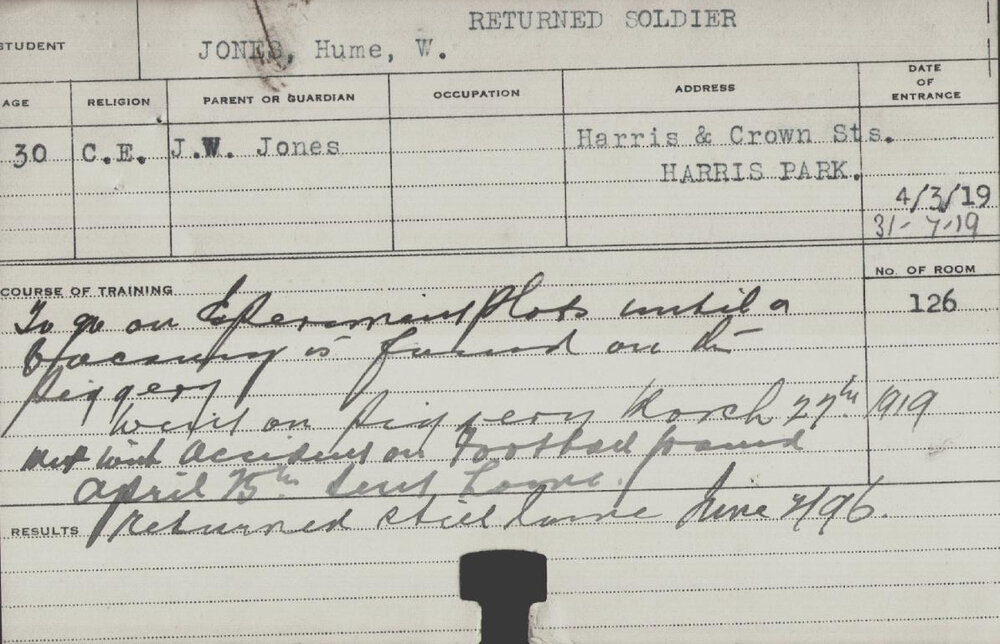 RETURNED SOLDIER
STUDENT
JONES, Hume, W.
AGE
RELIGION
PARENT OR GUARDIAN
OCCUPATION
ADDRESS
DATE OF ENTRANCE
30
C.E.
J.W. Jones
Harris & Crown Sts.
HARRIS PARK.
4/3/19
31-7-19
No. OF ROOM
126
COURSE OF TRAINING
To go on Experiment Plots until a
Vacancy is found on the
piggery
Went on piggery March 27th 1919
Met with Accident on Football ground
April 25th Sent home.
RESULTS
returned still lame June